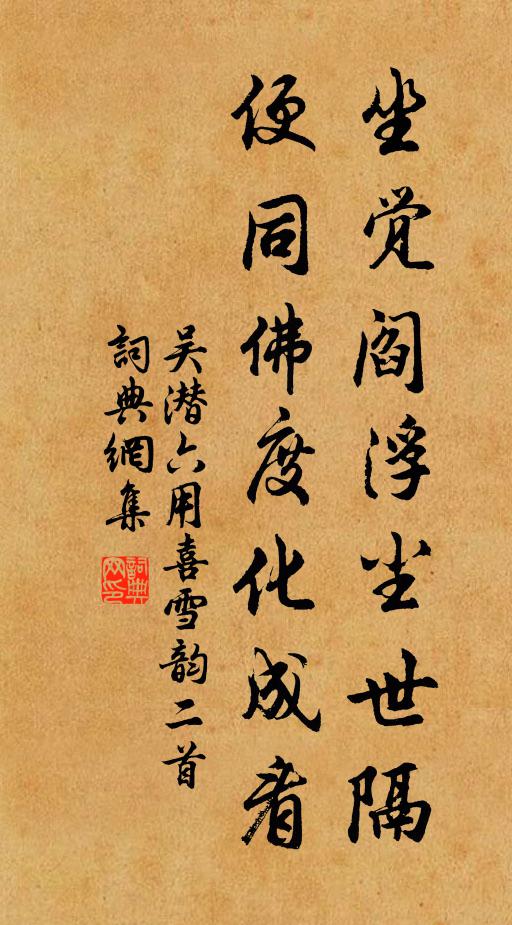 坐觉阎浮尘世隔
便同佛度化成看
吴潜六用喜雪韵二首
詞典網集
詞典网印